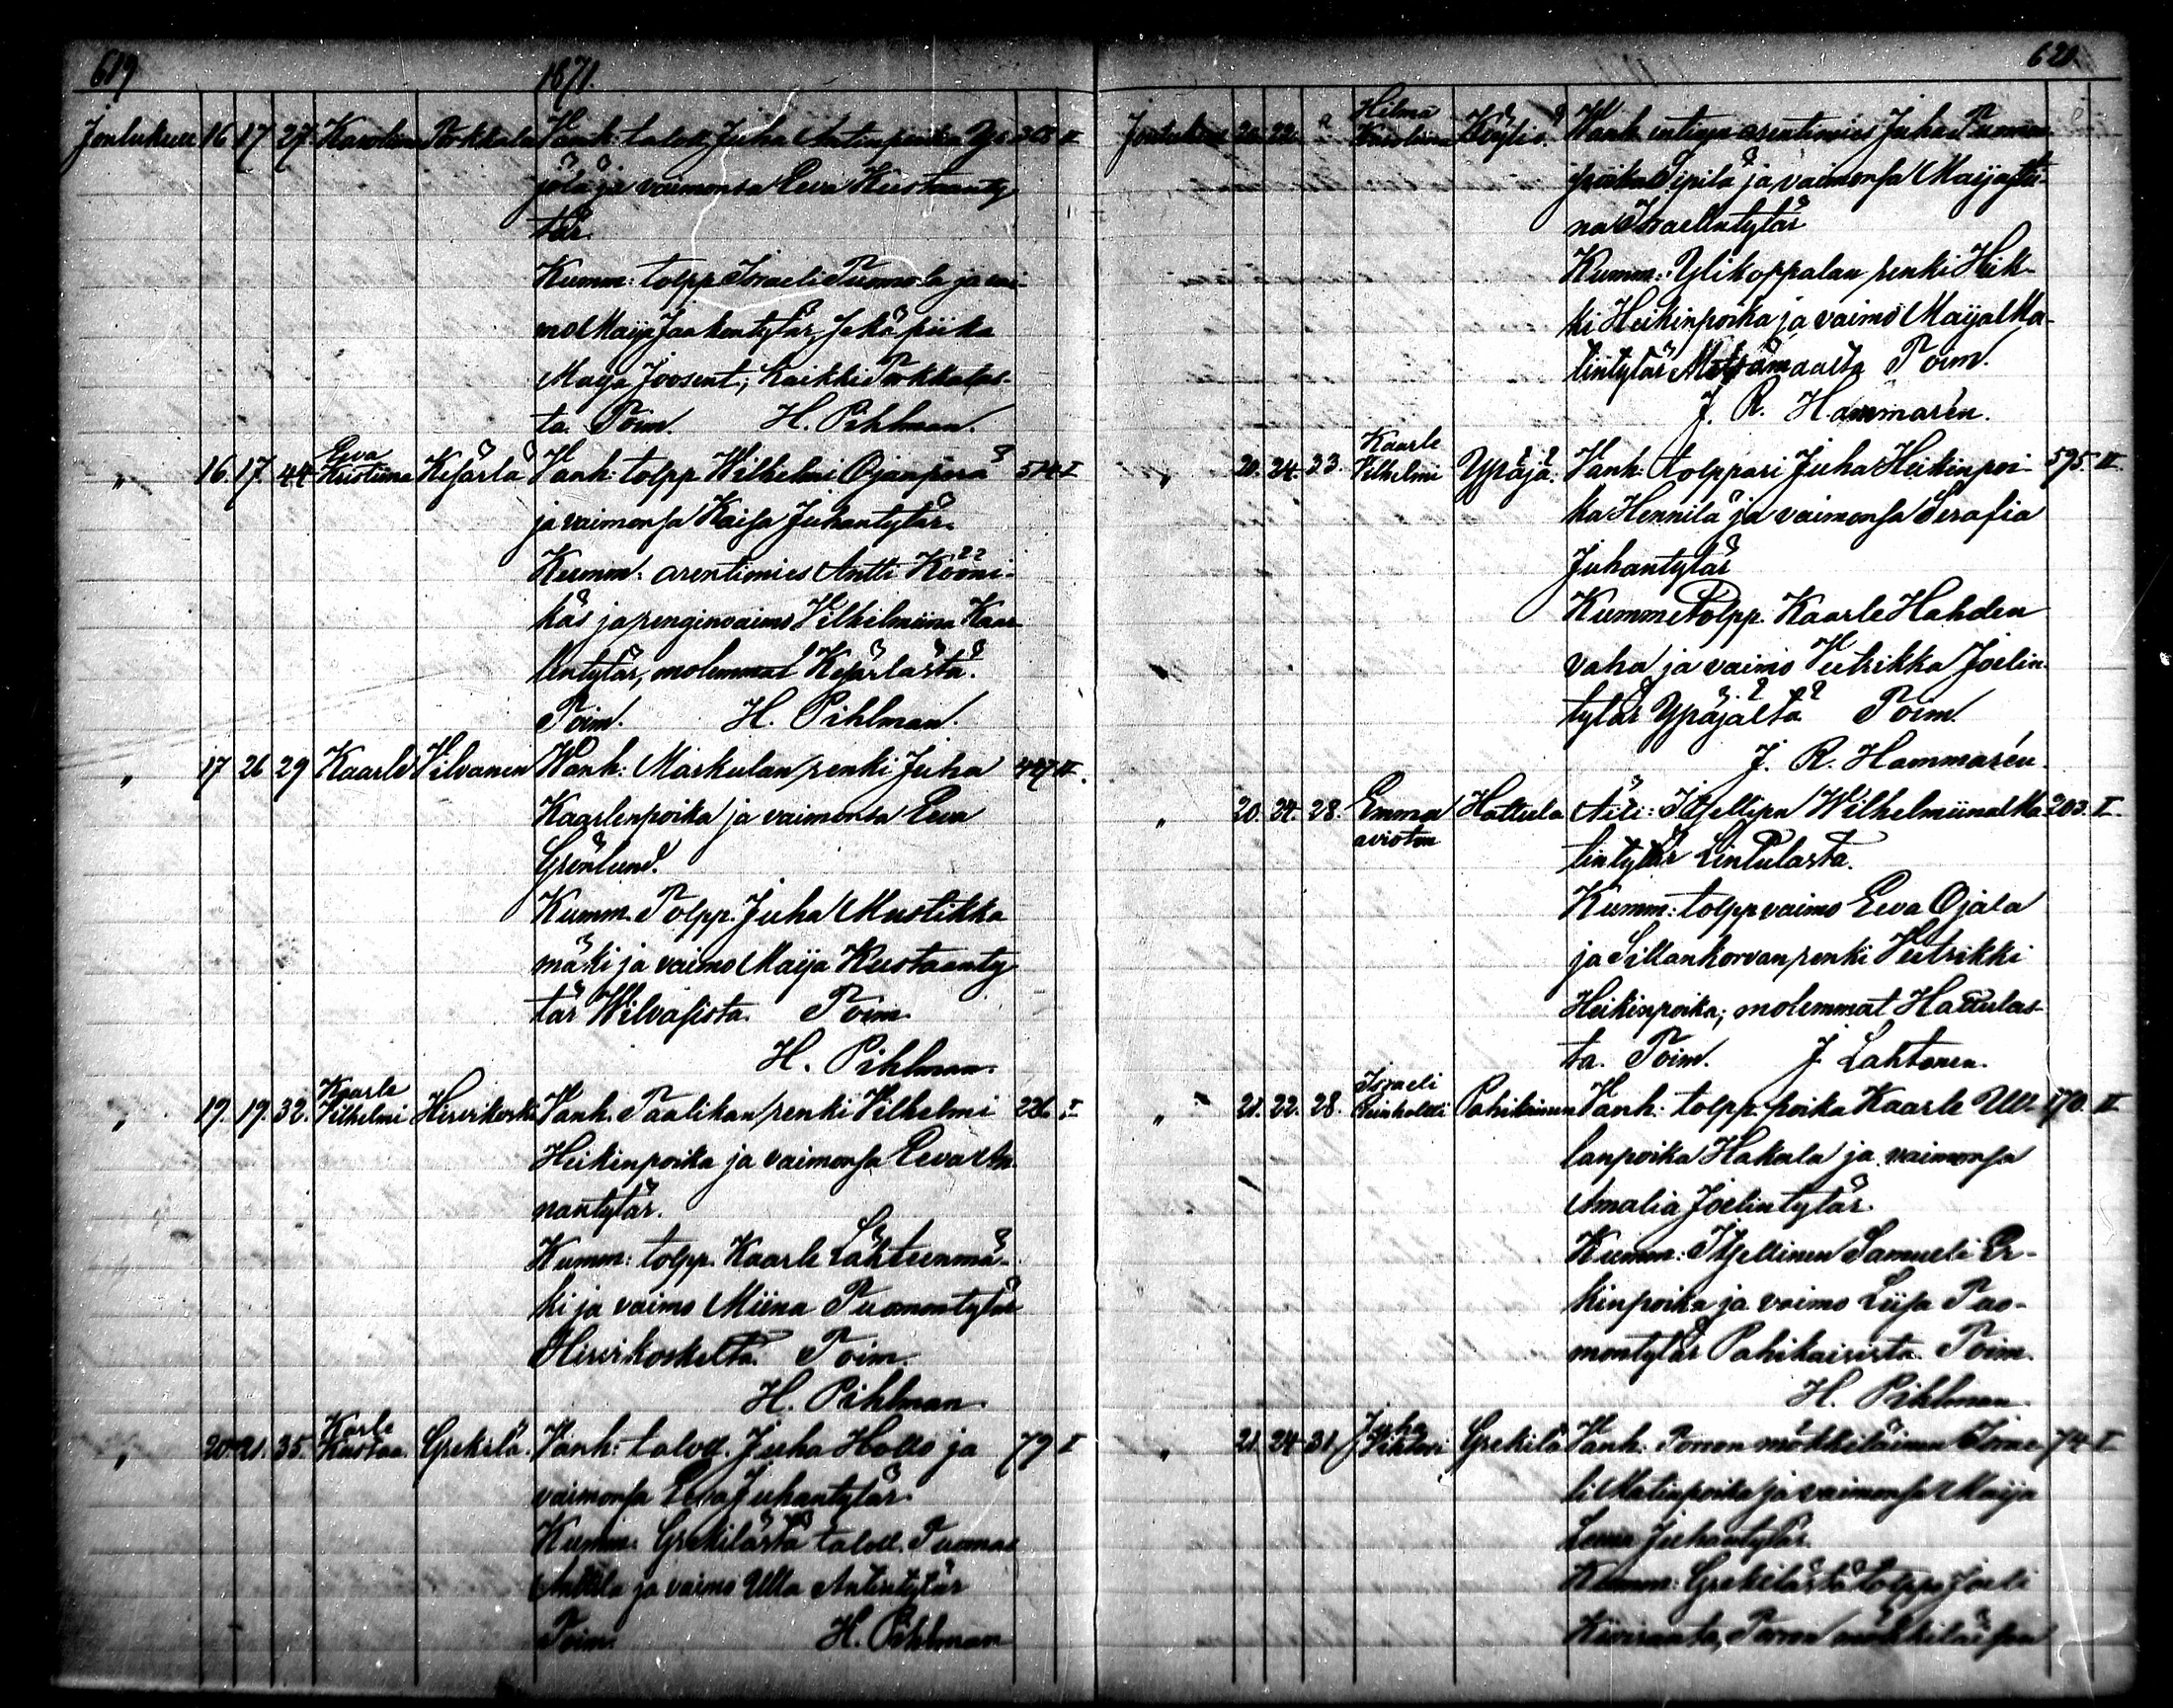 619
1871.
Joulukuu 16 17 27. Karoliina Pokkala Vanh. taloll. Juha Antinpoika Ypä- 368 II
jölä ja vaimonsa Eeva Kustaanty
tär.
Kumm: tolpp. Israeli Tuomola ja vai-
mo Maija Jaakontytär, sekä piika
Maija Joosent.; kaikki Pokkalas-
ta. Toim. H. Pihlman.
" 16. 17. 44. Eeva Kustiina Kejärlä Vanh: tolpp Wilhelmi Ojanperä 514 I
ja vaimonsa Kaisa Juhantytär.
Kumm: arentimies Antti Kööni-
käs ja renginvaimo Vilhelmiina Kaar
lentytär, molemmat Kejärlästä.
Toim. H. Pihlman.
" 17 26 29 Kaarle Vilvanen Wanh: Markulan renki Juha 447 II.
Kaarlenpoika ja vaimonsa Eeva
Grönlund.
Kumm. Tolpp. Juha Mustikka
mäki ja vaimo Maija Kustaanty
tär Wilvasista. Toim.
H. Pihlman.
" 19. 19. 32. Kaarle Vilhelmi Hirvikoski Vanh. Paalikan renki Vilhelmi 226. I
Heikinpoika ja vaimonsa Eeva An
nantytär.
Kumm: tolpp. Kaarle Lähteenmä-
ki ja vaimo Miina Tuomontytär
Hirvikoskelta. Toim.
H. Pihlman.
" 20. 21. 35. Kaarle Kustaa. Grekilä. Vanh: taloll. Juha Hollo ja 79 I
vaimonsa Eeva Juhantytär.
Kumm: Grekilästä taloll. Tuomas
Anttila ja vaimo Ulla Antintytär
Toim. H. Pihlman
620.
Joulukuu 20. 22. Hilma Karoliina Köyliö. Wanh. entinen arentimies Juha Tuomaan
poika Sipilä ja vaimonsa Maija Stii-
na Israelintytär
Kumm: Ylikoppalan renki Heik-
ki Heikinpoika ja vaimo Maija Ma-
tintytär Metsämaalta Toim.
J. R. Hammarén.
" 20. 24. 33. Kaarle Vilhelmi Ypäjä. Vanh: tolppari Juha Heikinpoi- 595. II.
ka Hennilä ja vaimonsa Serafia
Juhantytär
Kumm. Tolpp. Kaarle Hahden
vaha ja vaimo Vetrikka Joelin-
tytär Ypäjältä Toim.
J. R. Hammarén.
" 20. 24. 28. Emma aviotoin Hattula Äiti: Itsellinen Wilhelmiina Ma- 203. I.
tintytär Lintulasta.
Kumm: tolpp vaimo Eeva Ojala
ja Sillankorvan renki Vetrikki
Heikinpoika; molemmat Hattulas-
ta. Toim. J Lahtonen.
" 21. 22. 28. Israeli Reinholdi Pahikainen Vanh: tolpp. poika Kaarle Ul- 170. II
lanpoika Hakala ja vaimonsa
Amalia Joelintytär.
Kumm: Itsellinen Samueli Er-
kinpoika ja vaimo Liisa Tuo-
montytär Pahikaisista. Toim.
H. Pihlman
" 21. 24. 31. Juha Vihtori Grekilä Vanh: Porron mökkiläinen Israe- 74. I
li Matinpoika ja vaimonsa Maija
Leena Juhantytär.
Kumm: Grekilästä tolpp. Joeli
Kiviranta, Porron mökkiläisen